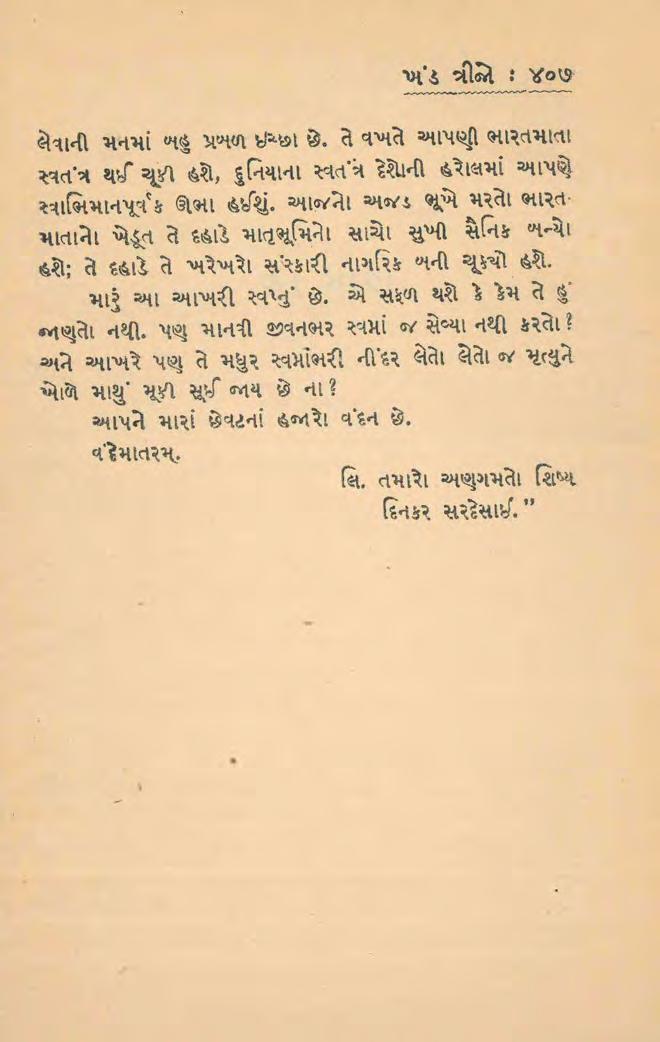 ખંડ ત્રીજો : ૪૦૭
લેવાની મનમાં બહુ પ્રબળ ઇચ્છા છે. તે વખતે આપણી ભારતમાતા
સ્વતંત્ર થઈ ચૂકી હશે, દુનિયાના સ્વતંત્ર દેશોની હરોલમાં આપણે
સ્વાભિમાનપૂર્વક ઊભા હઈશું. આજનો અજડ ભૂખે મરતો ભારત-
માતાનો ખેડૂત તે દહાડે માતૃભૂમિનો સાચો સુખી સૈનિક બન્યો
હશે; તે દહાડે તે ખરેખરો સંસ્કારી નાગરિક બની ચૂક્યો હશે.
મારું આ આખરી સ્વપ્નું છે. એ સફળ થશે કે કેમ તે હું
જાણતો નથી. પણ માનવી જીવનભર સ્વપ્નાં જ સેવ્યા નથી કરતો?
અને આખરે પણ તે મધુર સ્વપ્નાંભરી નીંદર લેતો લેતો જ મૃત્યુને
ખોળે માથું મૂકી સૂઈ જાય છે ના?
આપને મારાં છેવટનાં હજારો વંદન છે.
વંદેમાતરમ્.
લિ. તમારો અણગમતો શિષ્ય
દિનકર સરદેસાઈ.”